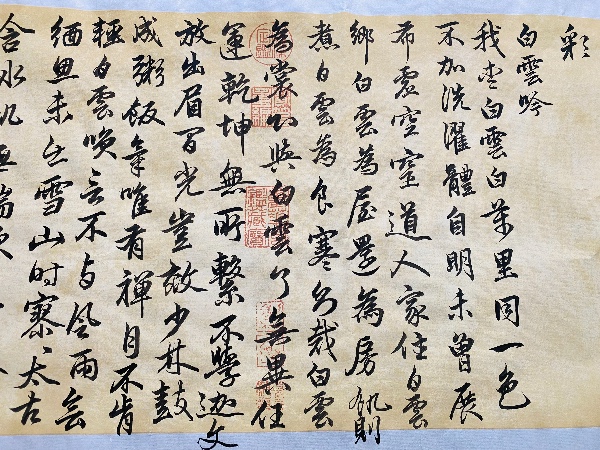 彩
白雲吟
我愛白雲白萬里同一色
不加洗濯體自明未曾展
布覆空室道人家住白雲
鄉白雲為屋還為房飢則
煮白雲為食寒裁白雲
為裳與白雲了無異任
運乾坤無所繫不學迦文
放出眉間光豈效少林鼓
成粥飯氣唯有禪月不肯
輕白雲喚言不與風雨會
緬思未至雪山時寥々太古
含水